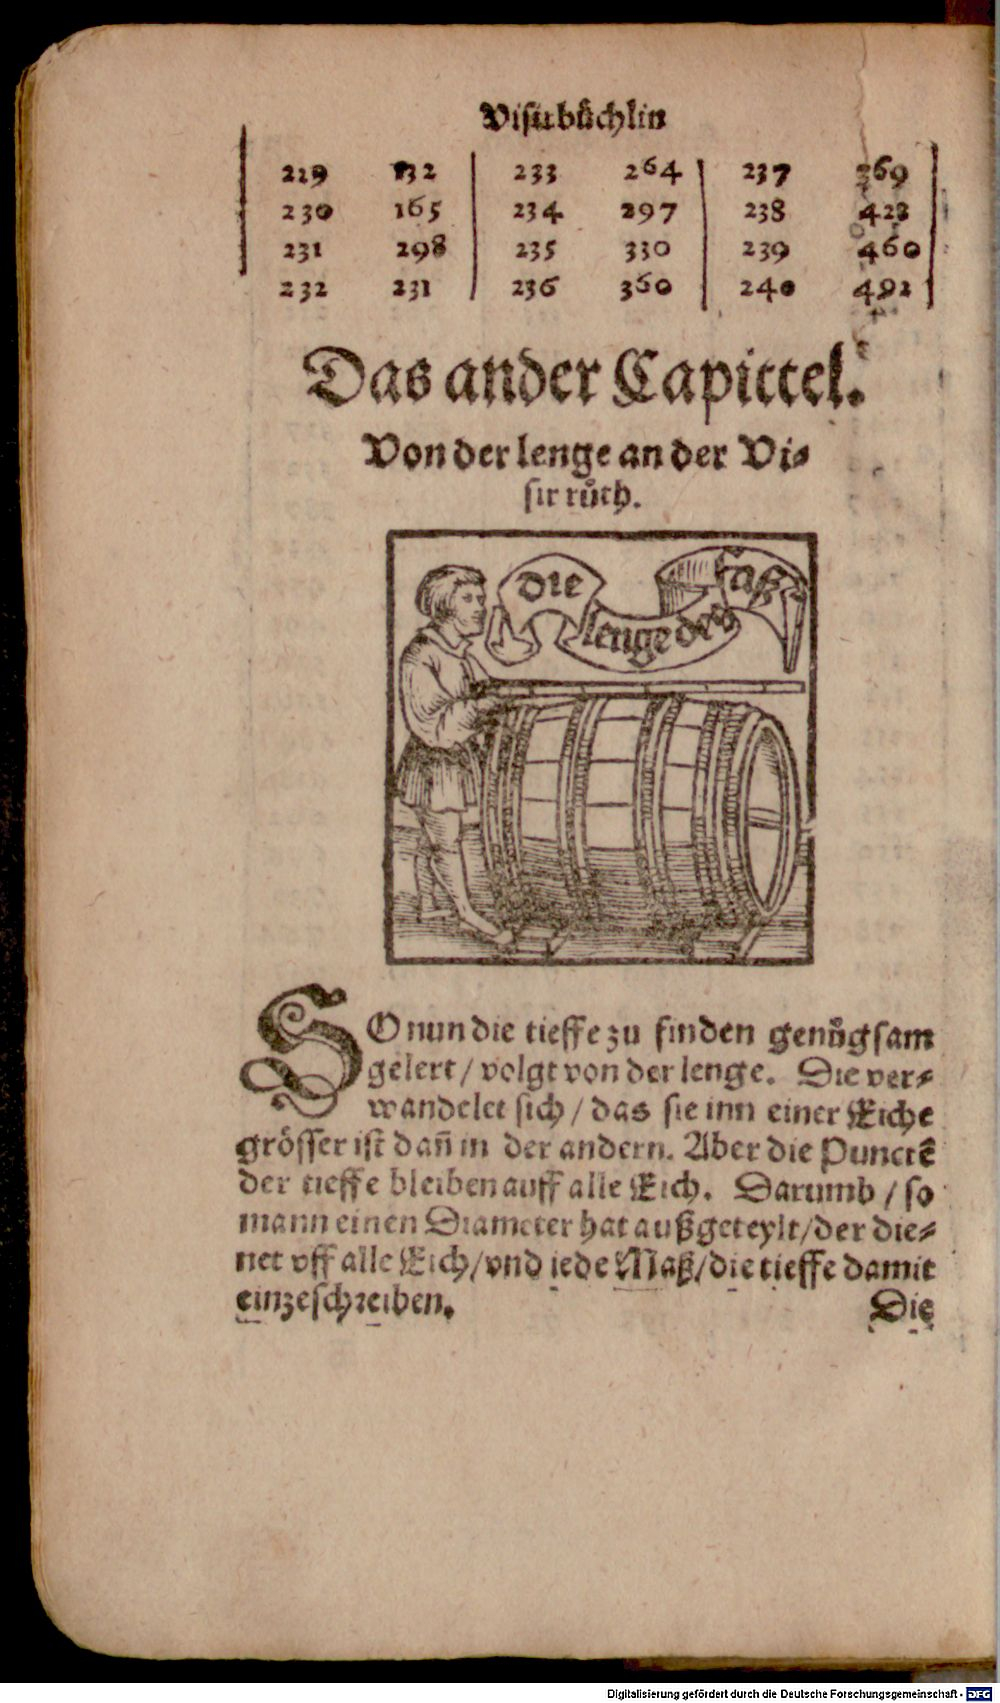 Visirbůchlin
229 132 233 264 237 369
230 165 234 297 238 428
231 298 235 330 239 460
232 231 236 360 240 492
Das ander Capittel.
Von der lenge an der Vi⸗
sir růth.
die
lenge des
faß
SO nun die tieffe zu finden genůgsam
gelert / volgt von der lenge. Die ver⸗
wandelet sich / das sie inn einer Eiche
grösser ist dañ in der andern. Aber die Punctẽ
der tieffe bleiben auff alle Eich. Darumb / so
mann einen Diameter hat außgeteylt/der die⸗
net vff alle Eich/vnd iede Maß/die tieffe damit
einzeschreiben.
Die
Digitalisierung gefördert durch die Deutsche Forschungsgemeinschaft - DFG